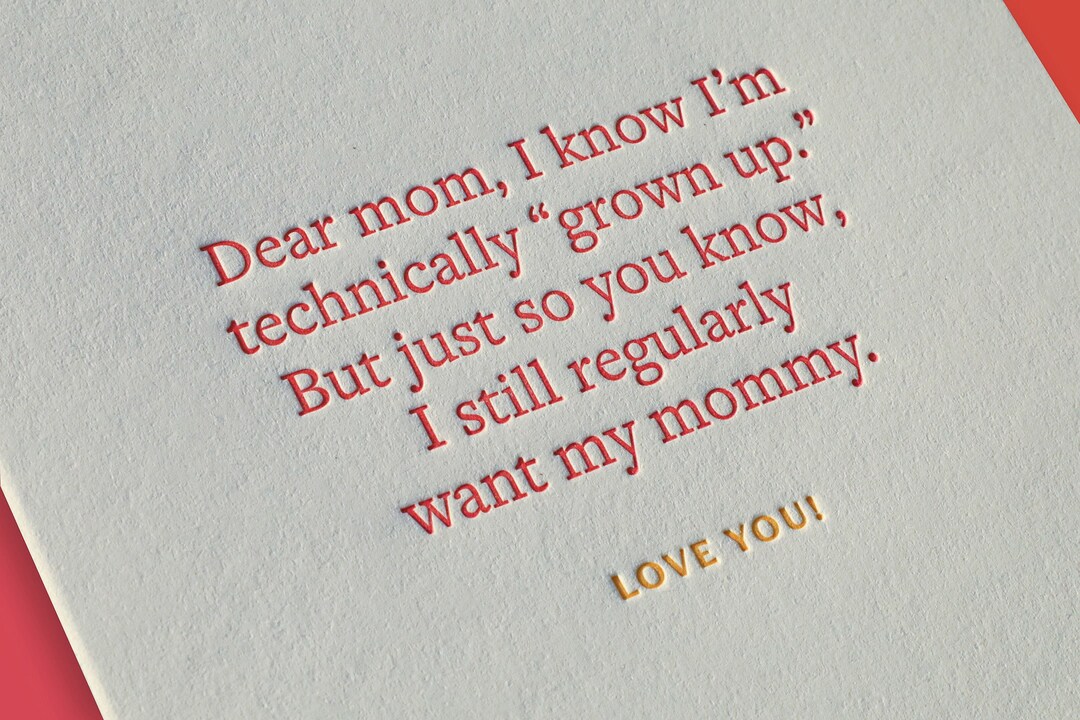 Dear mom, I know I’m
technically “grown up.”
But just so you know,
I still regularly
want my mommy.
LOVE YOU!